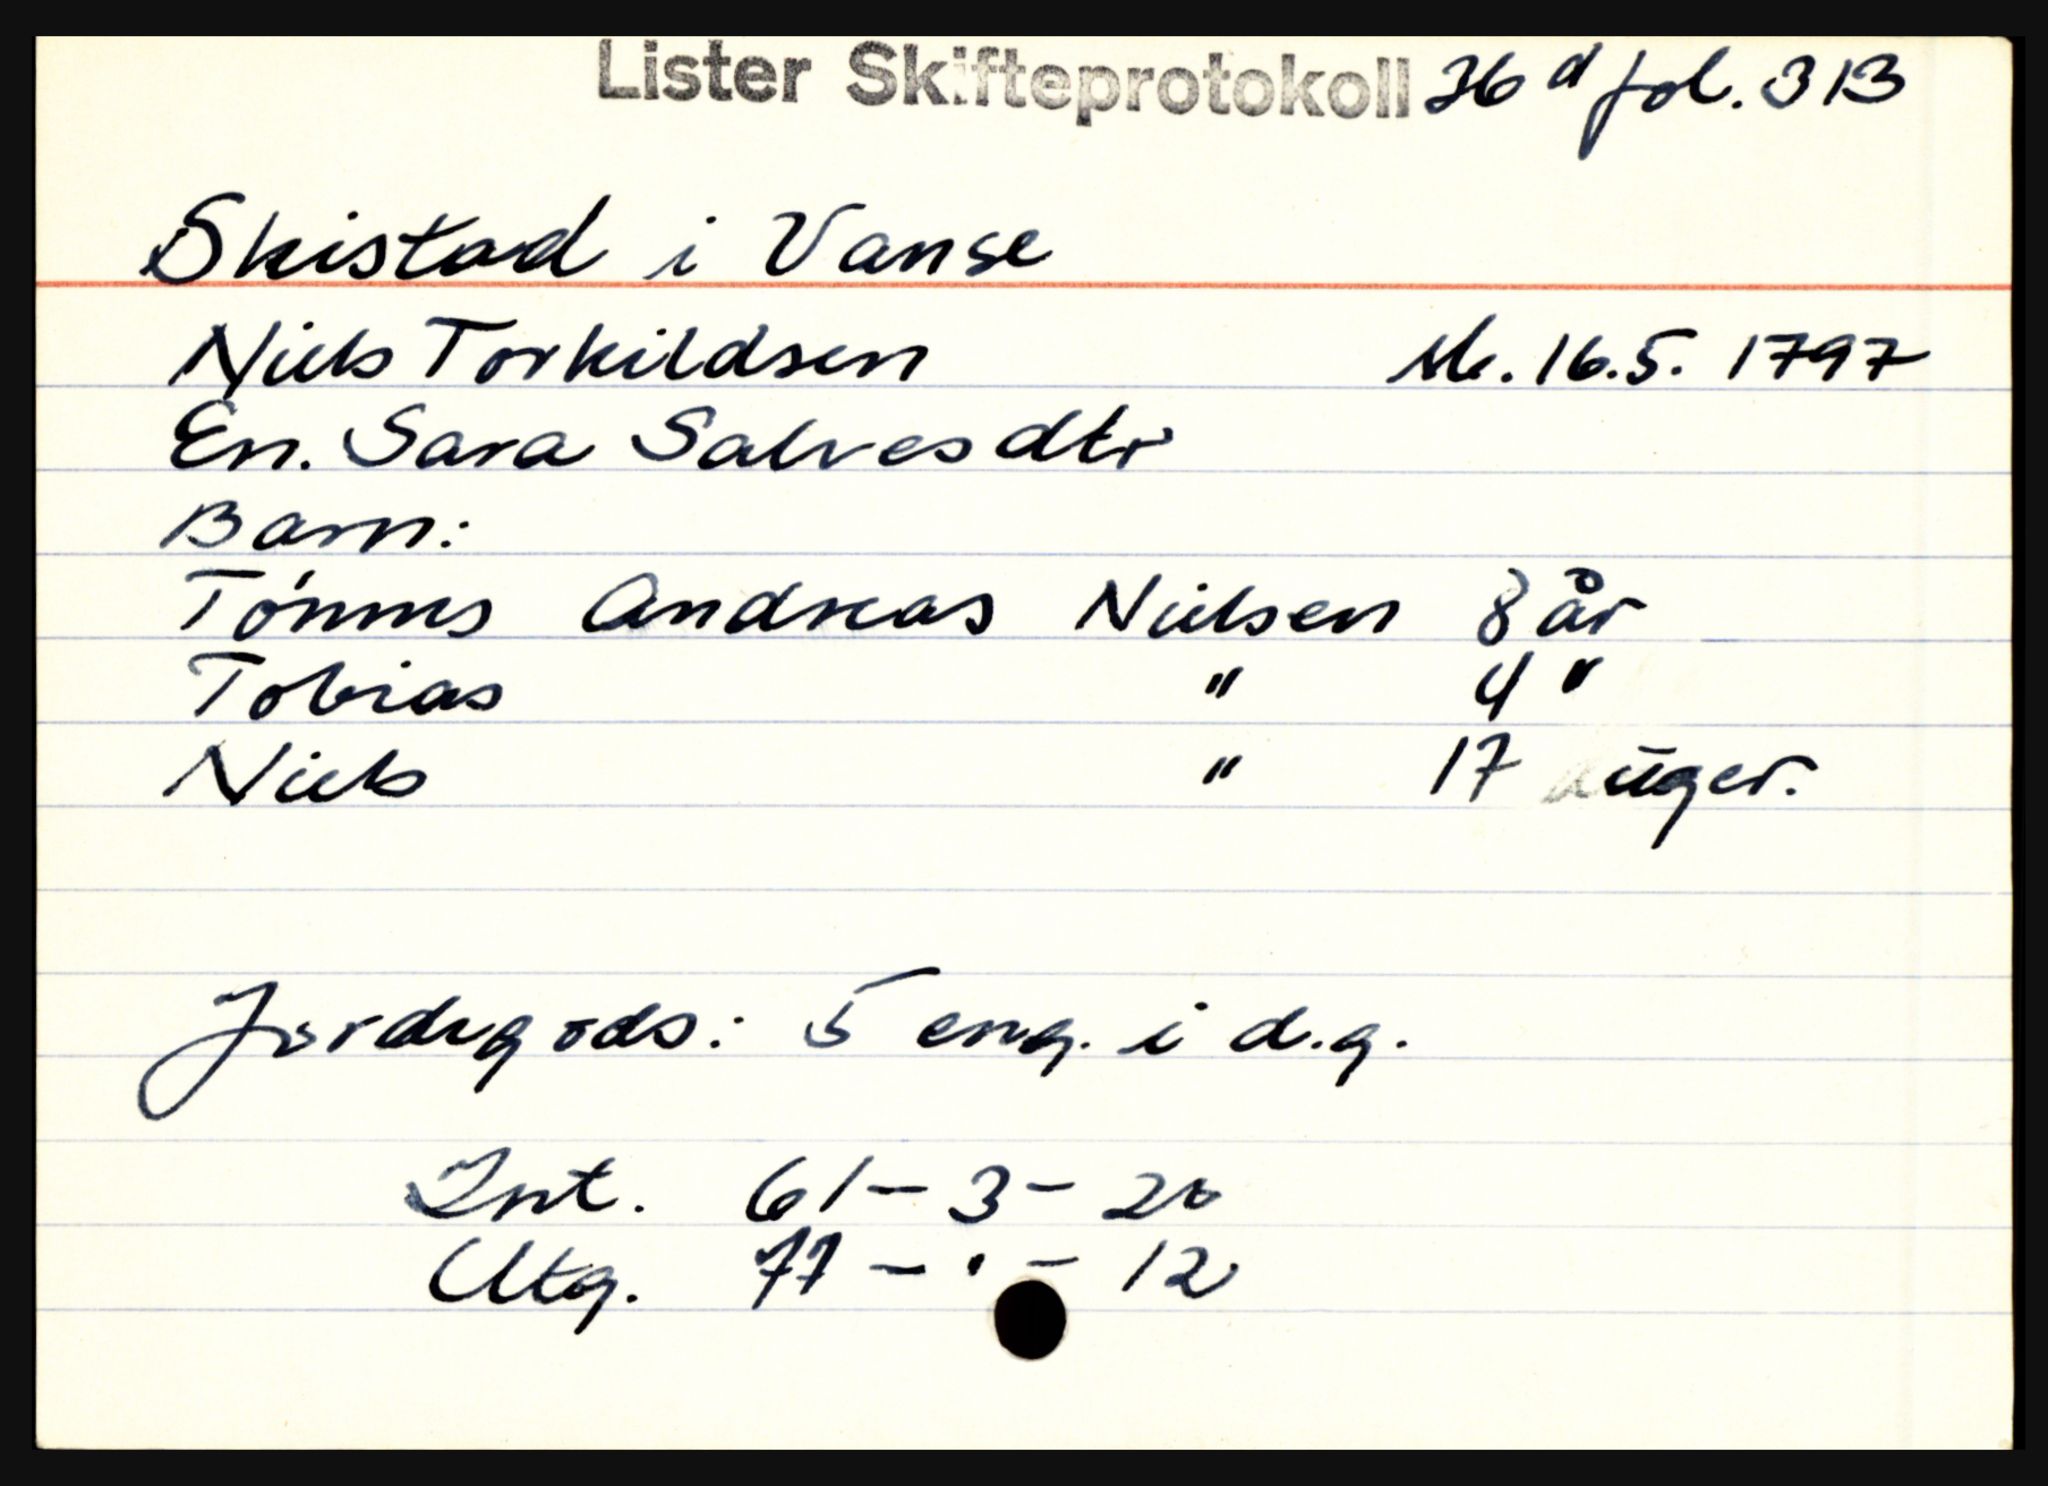 Lister Skifteprotokoll 36 d fol. 313
Skistad i Vanse
Niels Torkildsen Sk. 16.5. 1797
En. Sara Salvesdtr
Barn:
Tønnes Andreas Nielsen 8 år
Tobias " 4 "
Niels " 17 uger.
Jordegods: 5 eng. i d.g.
Int. 61 - 3 - 20
Utg. 77 - " - 12